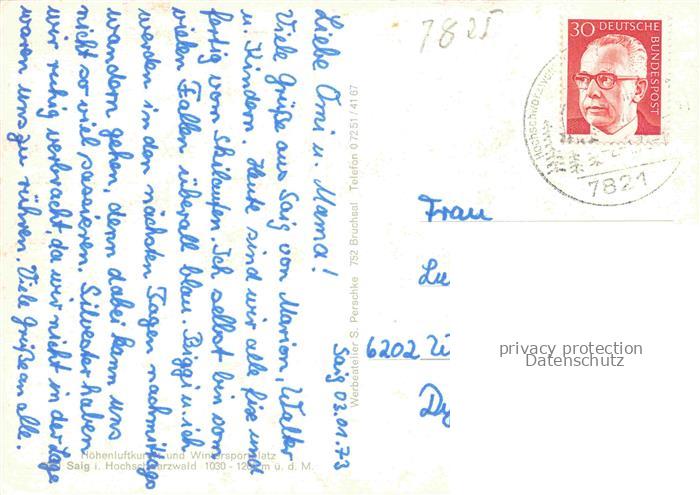 7825
30 DEUTSCHE BUNDESPOST
Hochschwarzwald
7821
Saig 03.01.73
Liebe Omi u. Mama!
Viele Grüße aus Saig von Marion, Walter
u. Kindern. Heute sind wir alle fix und
fertig vom Skilaufen. Ich selbst bin vom
vielen Fallen überall blau. Biggi u. ich
werden in den nächsten Tagen nachmittags
wandern gehen, denn dabei kann uns
nicht so viel passieren. Silvester haben
wir ruhig verbracht, da wir nicht in der Lage
waren uns zu rühren. Viele Grüße an alle.
Werbeatelier S. Perschke 752 Bruchsal Telefon 07251/4167
Höhenluftkurort und Wintersportplatz
Saig i. Hochschwarzwald 1030 - 1200 m ü. d. M.
Frau
6202
privacy protection
Datenschutz